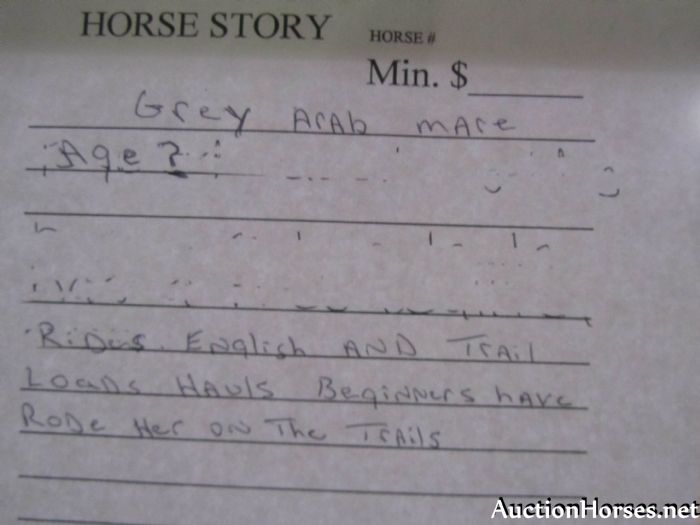 HORSE STORY HORSE #
Min. $
Grey Arab mare
Age?
Rides English AND Trail
Loads Hauls Beginners have
Rode Her on The Trails
AuctionHorses.net